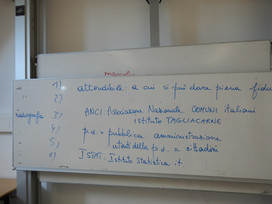 1) attendibile: a cui si può dare piena fidu
2)
ANCI: Associazione Nazionale COMUNI italiani
3) istituto TAGLIACARNE
4) p.a. = pubblica amministrazione
5) utenti della p.a. = cittadini
6) ISTAT: Istituto Statistica it.